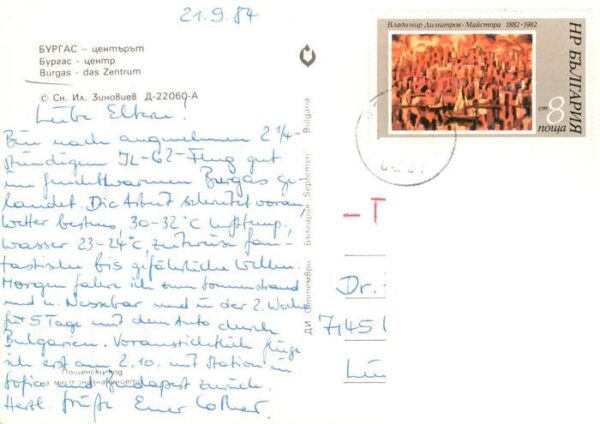 21.9.84
БУРГАС – центърът
Бургас – центр
Burgas – das Zentrum
© Сн. Ил. Зиновиев Д-22060-А
Liebe Eltern!
Bin nach angenehmen 2 1/4-
stündigem IL-62-Flug gut
im feuchtwarmen Burgas ge-
landet. Die Arbeit schreitet voran,
Wetter bestens, 30-32°C Lufttemp.,
Wasser 23-24°C, zeitweise fan-
tastische bis gefährliche Wellen.
Morgen fahre ich zum Sonnenstrand
und n. Nessebar und in der 2. Woche
für 5 Tage mit dem Auto durch
Bulgarien. Voraussichtlich fliege
ich erst am 2.10. mit Station in
Sofia und Budapest zurück.
Herzl. Grüße Euer Lothar.
Пощенски код
ДИ „Септември" България Septemvri Bulgaria
Владимир Димитров–Майстора 1882–1982
НР БЪЛГАРИЯ
ст 8
поща
–T
Dr.
7145